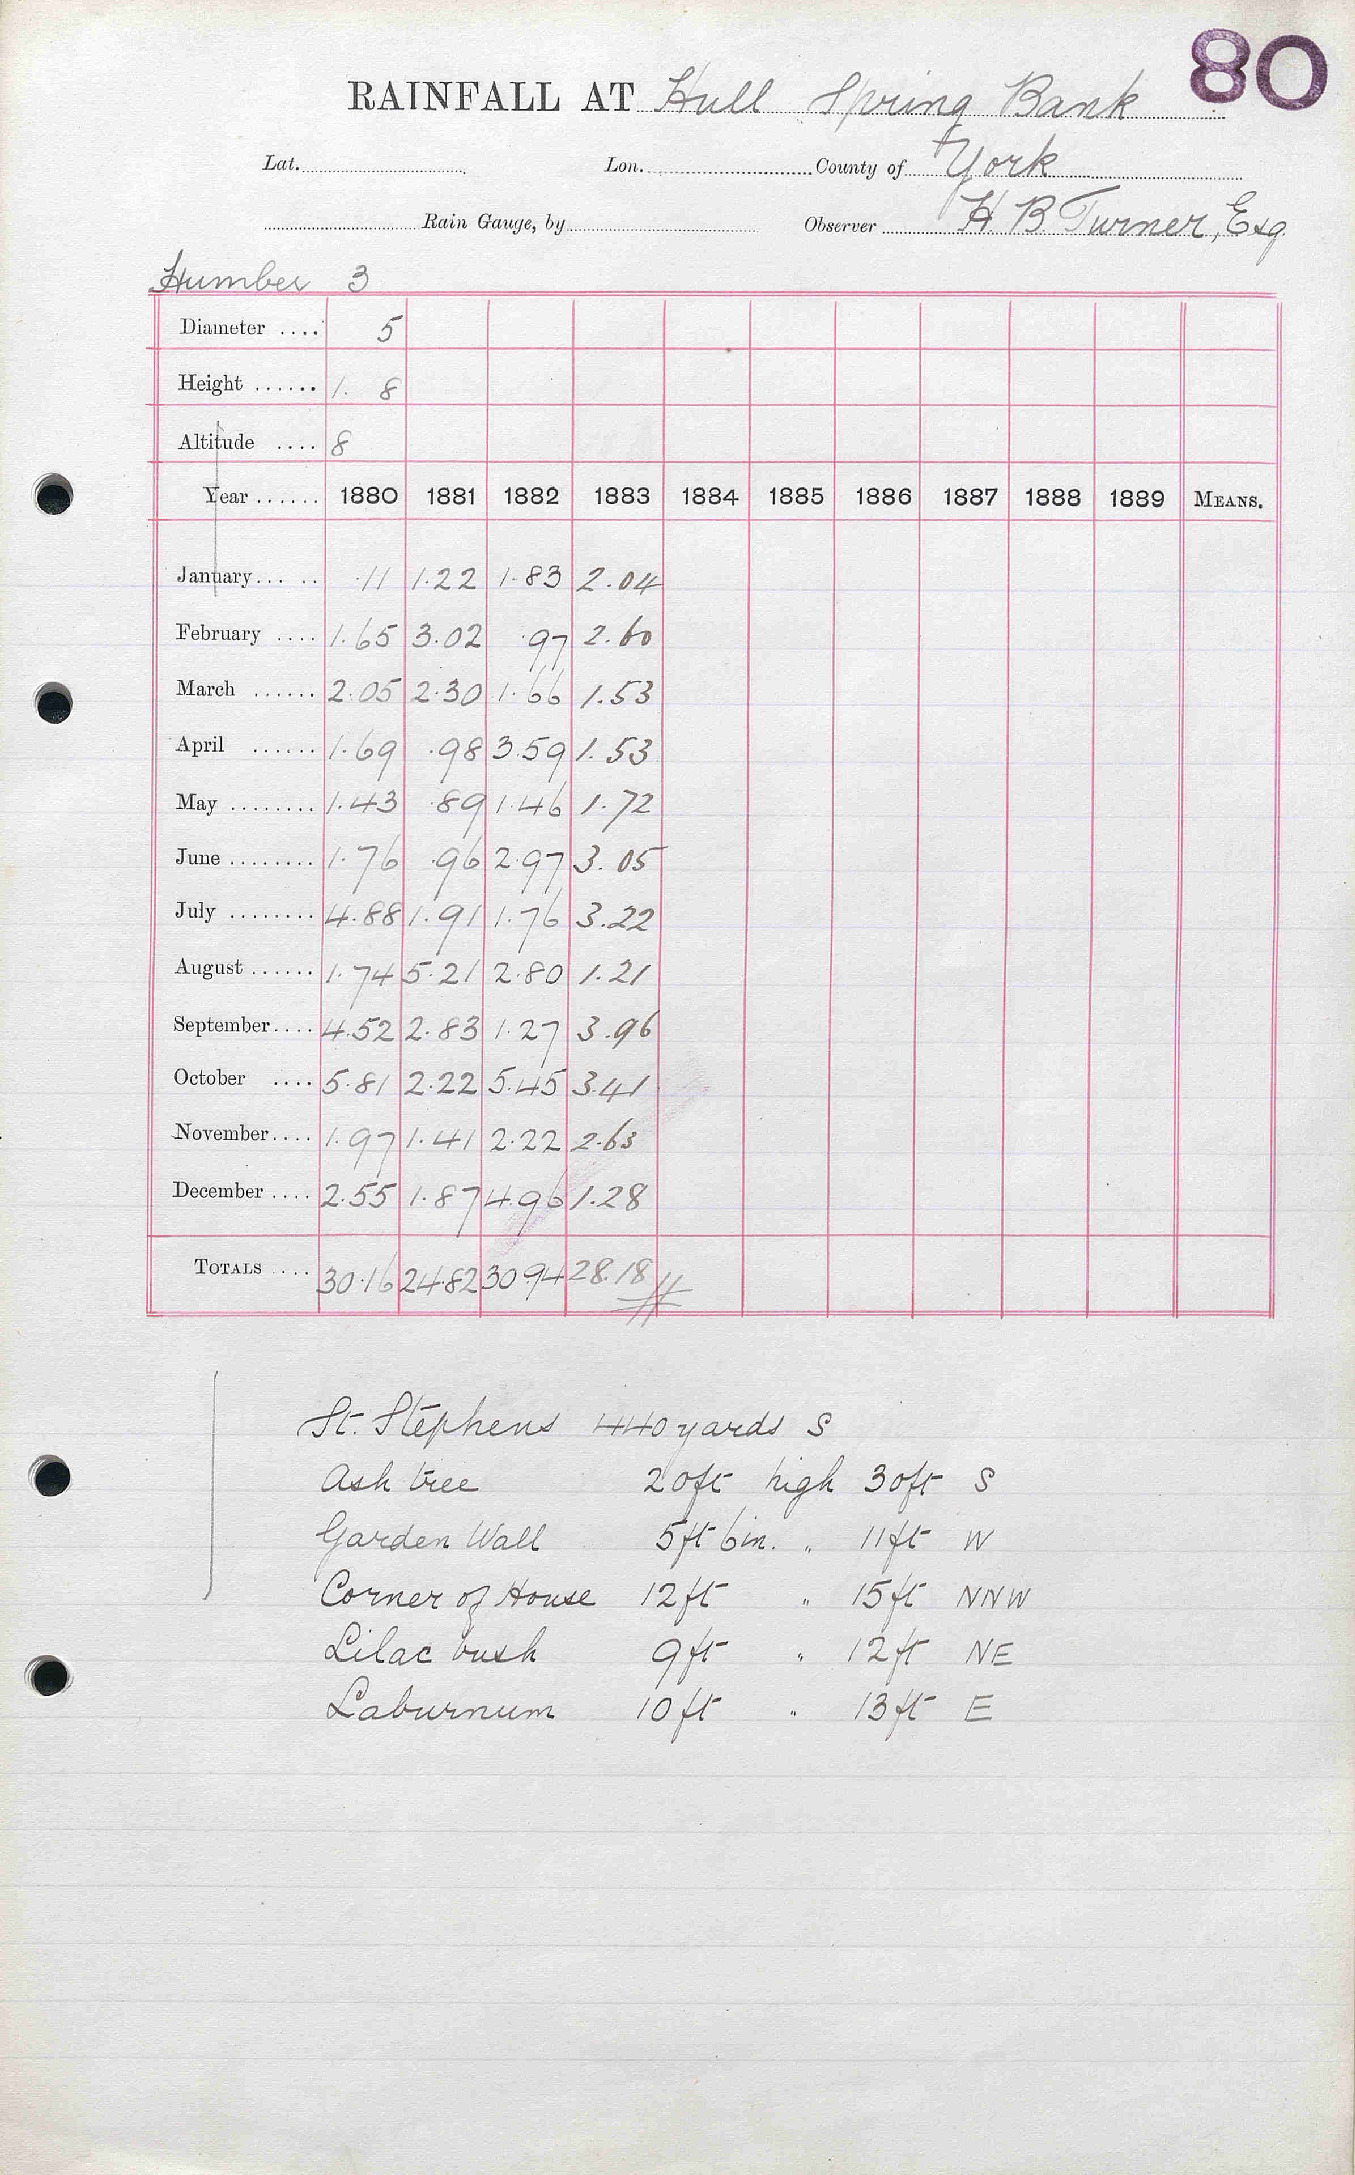 80
RAINFALL AT Hull Spring Bank
Lat. Lon. County of York
Rain Gauge, by Observer H B Turner, Esq
Humber 3
Diameter .... 5
Height ...... 1. 8
Altitude .... 8
Year ...... 1880 1881 1882 1883 1884 1885 1886 1887 1888 1889 MEANS.
January... .. .11 1.22 1.83 2.04
February .... 1.65 3.02 .97 2.60
March ...... 2.05 2.30 1.66 1.53
April ...... 1.69 .98 3.59 1.53
May ........ 1.43 .89 1.46 1.72
June ........ 1.76 .96 2.97 3.05
July ........ 4.88 1.91 1.76 3.22
August ...... 1.74 5.21 2.80 1.21
September.... 4.52 2.83 1.27 3.96
October .... 5.81 2.22 5.45 3.41
November.... 1.97 1.41 2.22 2.63
December .... 2.55 1.87 4.96 1.28
TOTALS .... 30.16 24.82 30.94 28.18
St. Stephens 440 yards S
Ash tree 20ft high 30ft S
Garden Wall 5ft 6in. " 11ft W
Corner of House 12ft " 15ft NNW
Lilac bush 9ft " 12ft NE
Laburnum 10ft " 13ft E